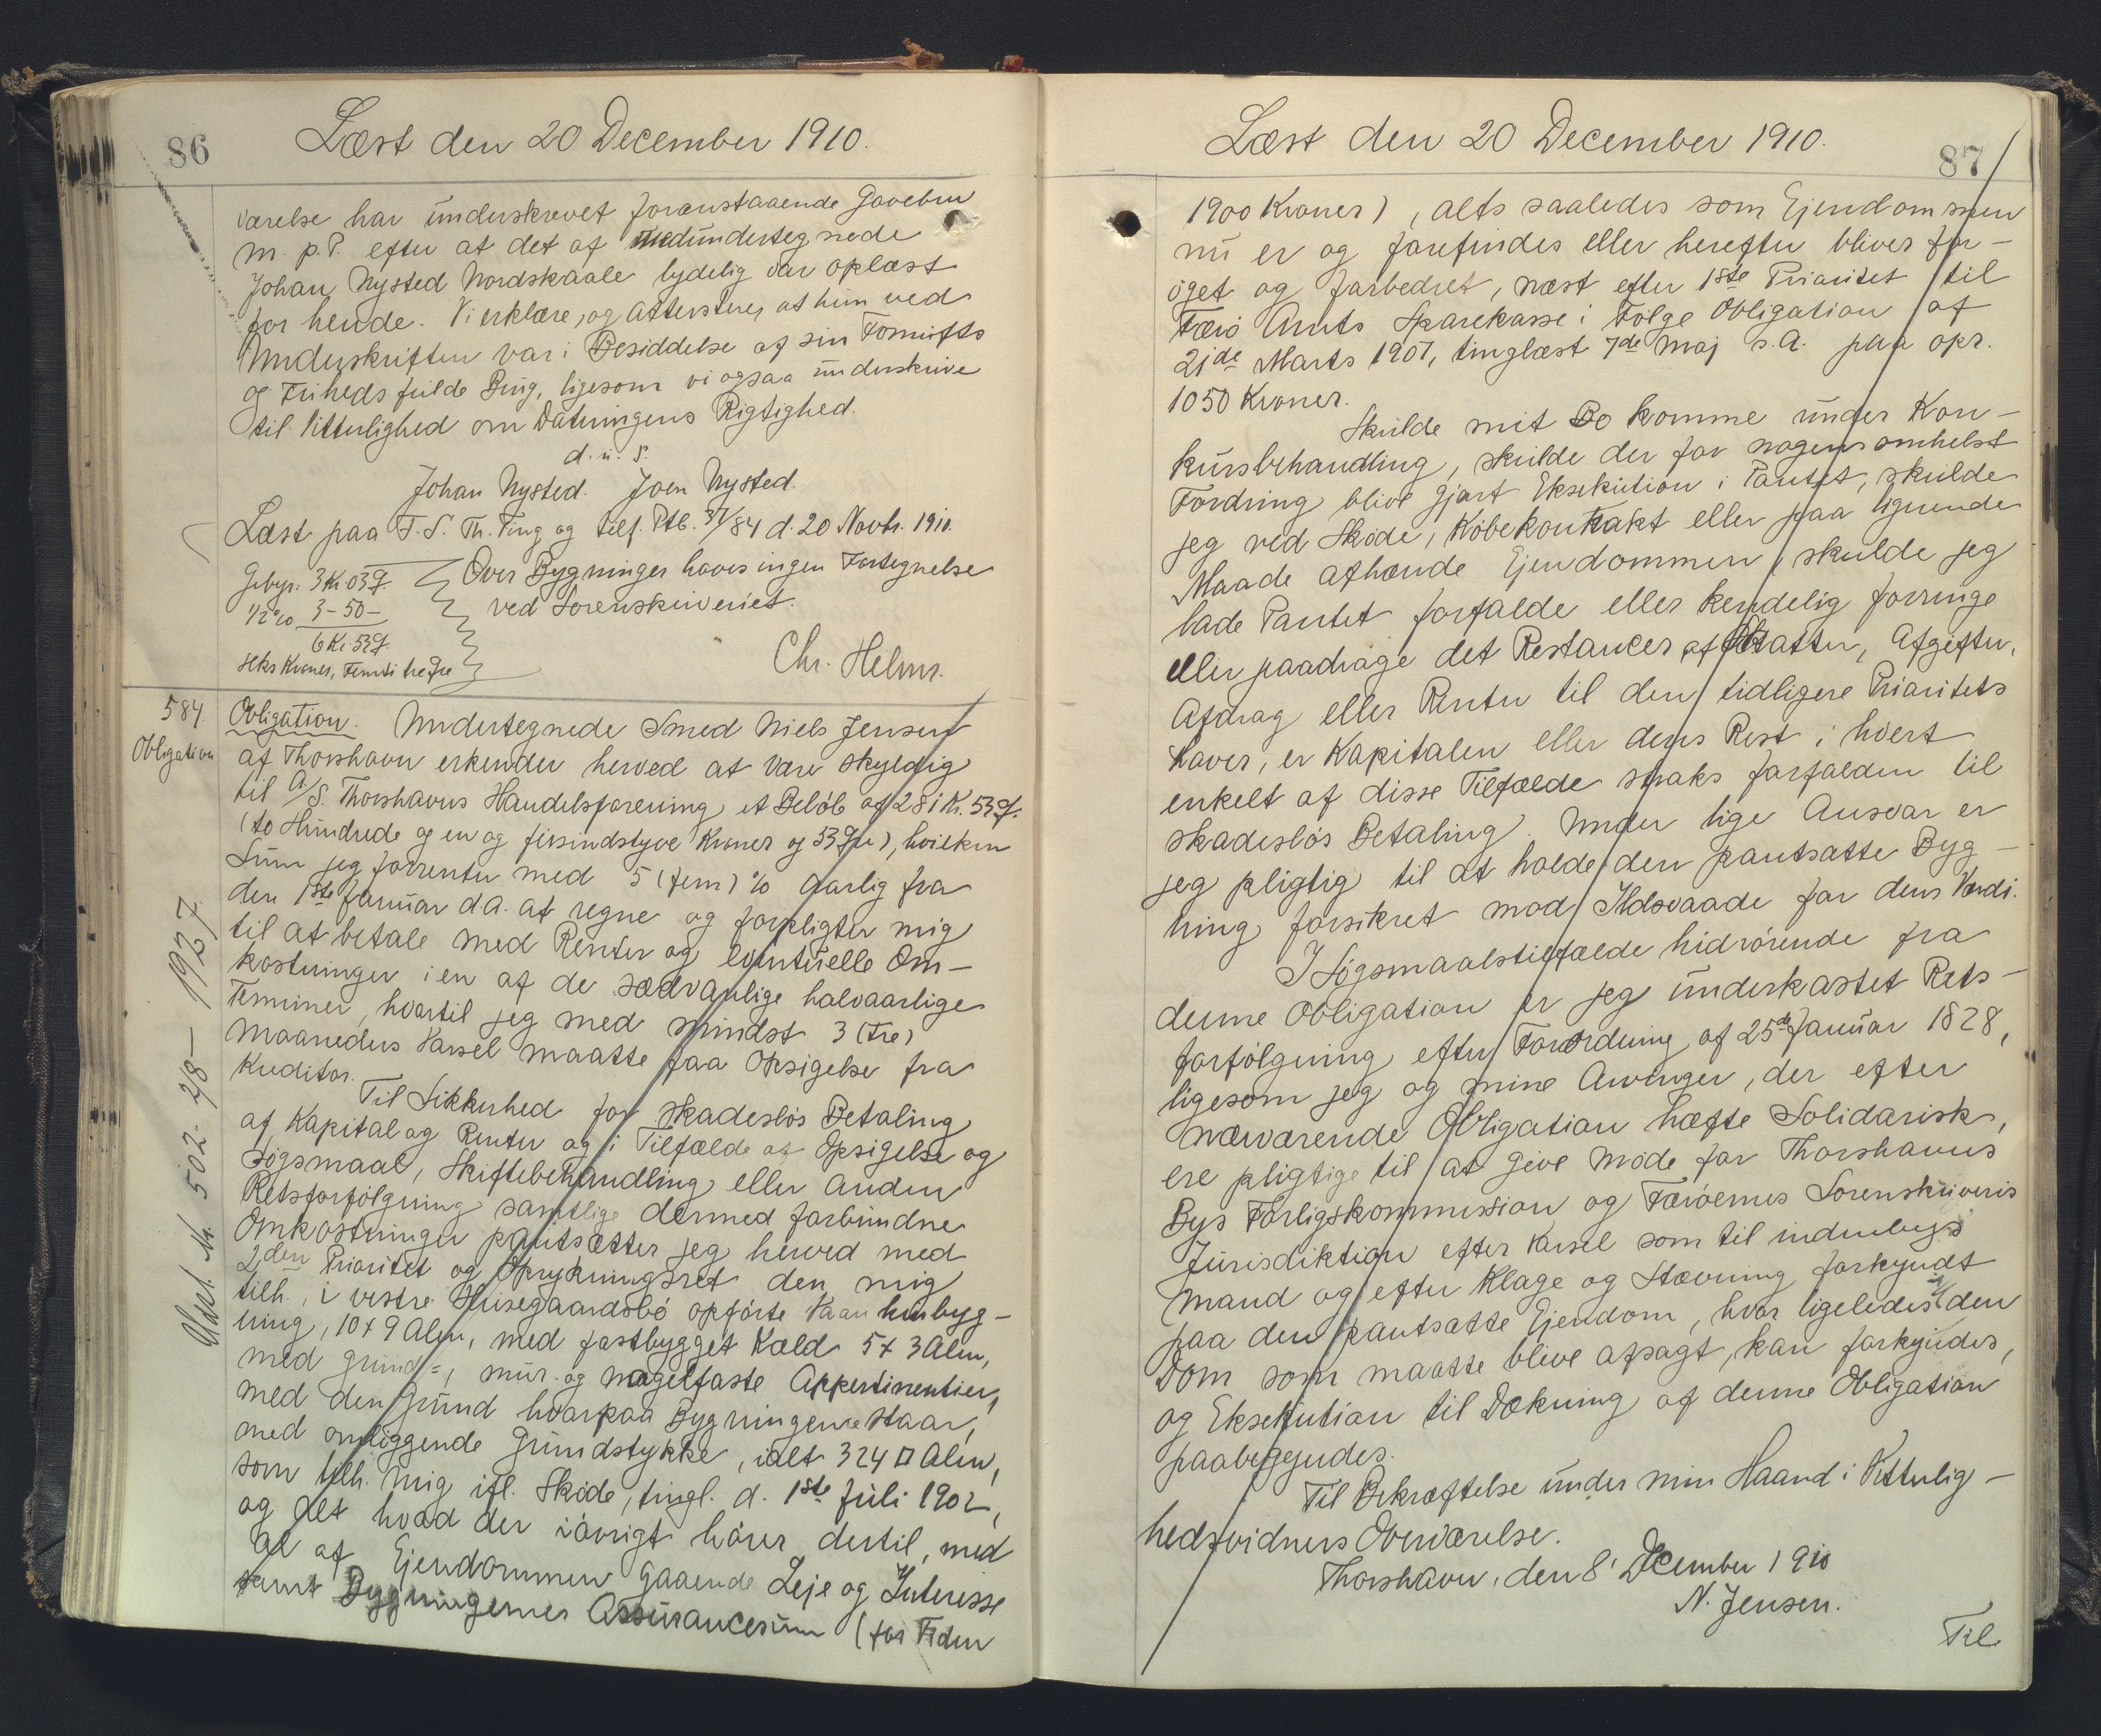 86
Læst den 20 December 1910.
værelse har underskrevet foranstaaende Gavebrev
m. p. P. efter at det af medundertegnede
Johan Nysted Nordskaale lydelig var oplæst
for hende. Vi erklære, og attesterer at hun ved
Underskriften var i Besiddelse af sin Fornufts
og Friheds fulde Brug, ligesom vi ogsaa underskrive
til Vitterlighed om Dateringens Rigtighed.
d. u. S.
Johan Nysted. Joen Nysted.
Læst paa T. S. Th. Ting og tilf. Ptb. 37/84 d. 20 Novbr. 1910.
Gebyr: 3 Kr 03 Ø.
1/2 % 3-50-
6 Kr 53 Ø
Seks Kroner, Femti tre Øre
Over Bygninger haves ingen Fortegnelse
ved Sorenskriveriet.
Chr. Helms.
584.
Obligation
Obligation. Undertegnede Smed Niels Jensen
af Thorshavn erkender herved at være skyldig
til A/S. Thorshavns Handelsforening et Beløb af 281 Kr. 53 Ø.
(to Hundrede og en og firsindstyve Kroner og 53 Øre), hvilken
Sum jeg forrenter med 5 (fem) % aarlig fra
den 1ste Januar d A. at regne og forpligter mig
til at betale med Renter og eventuelle Om-
kostninger i en af de sædvanlige halvaarlige
Terminer, hvortil jeg med mindst 3 (tre)
Maaneders Varsel maatte faa Opsigelse fra
Kreditor.
Til Sikkerhed for skadesløs Betaling
af Kapital og Renter og i Tilfælde af Opsigelse og
Søgsmaal, Skiftebehandling eller anden
Retsforfølgning samtlige dermed forbundne
Omkostninger pantsætter jeg herved med
2den Prioritet og Oprykningsret den mig
tilh., i vestre Husegaardsbø opførte Vaanhusbyg-
ning, 10 x 9 Alen, med fastbygget Kæld 5 x 3 Alen,
med grund=, mur- og nagelfaste Appertinentier,
med den Grund hvorpaa Bygningerne staar,
med omliggende Grundstykke, ialt 324 □ Alen,
som tilh. mig ifl. Skøde, tingl. d. 1ste Juli 1902,
og alt hvad der iøvrigt hører dertil, med
al af Ejendommen gaaende Leje og Interesse
samt Bygningernes Assurancesum (for Tiden
Udsl. Nr. 502- 2/8- 1927
87
Læst den 20 December 1910.
1900 Kroner), alts saaledes som Ejendommen
nu er og forefindes eller herefter bliver for-
øget og forbedret, næst efter 1ste Prioritet til
Færø Amts Sparekasse i Følge Obligation af
21de Marts 1907, tinglæst 7de Maj s. A. paa opr.
1050 Kroner.
Skulde mit Bo komme under Kon-
kursbehandling, skulde der for nogensomhelst
Fordring blive gjort Eksekution i Pantet, skulde
jeg ved Skøde, Købekontrakt eller paa lignende
Maade afhænde Ejendommen, skulde jeg
lade Pantet forfalde eller kendelig forringe
eller paadrage det Restancer af Skatter, Afgifter,
Afdrag eller Renter til den tidligere Prioritets
haver, er Kapitalen eller dens Rest i hvert
enkelt af disse Tilfælde straks forfalden til
skadesløs Betaling. Under lige Ansvar er
jeg pligtig til at holde den pantsatte Byg-
ning forsikret mod Ildsvaade for dens Værdi.
I Søgsmaalstilfælde hidrørende fra
denne Obligation er jeg underkastet Rets-
forfølgning efter Forordning af 25de Januar 1828,
ligesom jeg og mine Arvinger, der efter
nærværende Obligation hæfte Solidarisk,
ere pligtige til at give Møde for Thorshavns
Bys Forligskommission og Færøernes Sorenskriveris
Jurisdiktion efter Varsel som til indenbys
Mand og efter Klage og Stævning forkyndt
paa den pantsatte Ejendom, hvor ligeledes den
Dom som maatte blive afsagt, kan forkyndes,
og Eksekution til Dækning af denne Obligation
paabegyndes.
Til Bekræftelse under min Haand i Vitterlig-
hedsvidners Overværelse.
Thorshavn, den 8' December 1910
N. Jensen.
Til